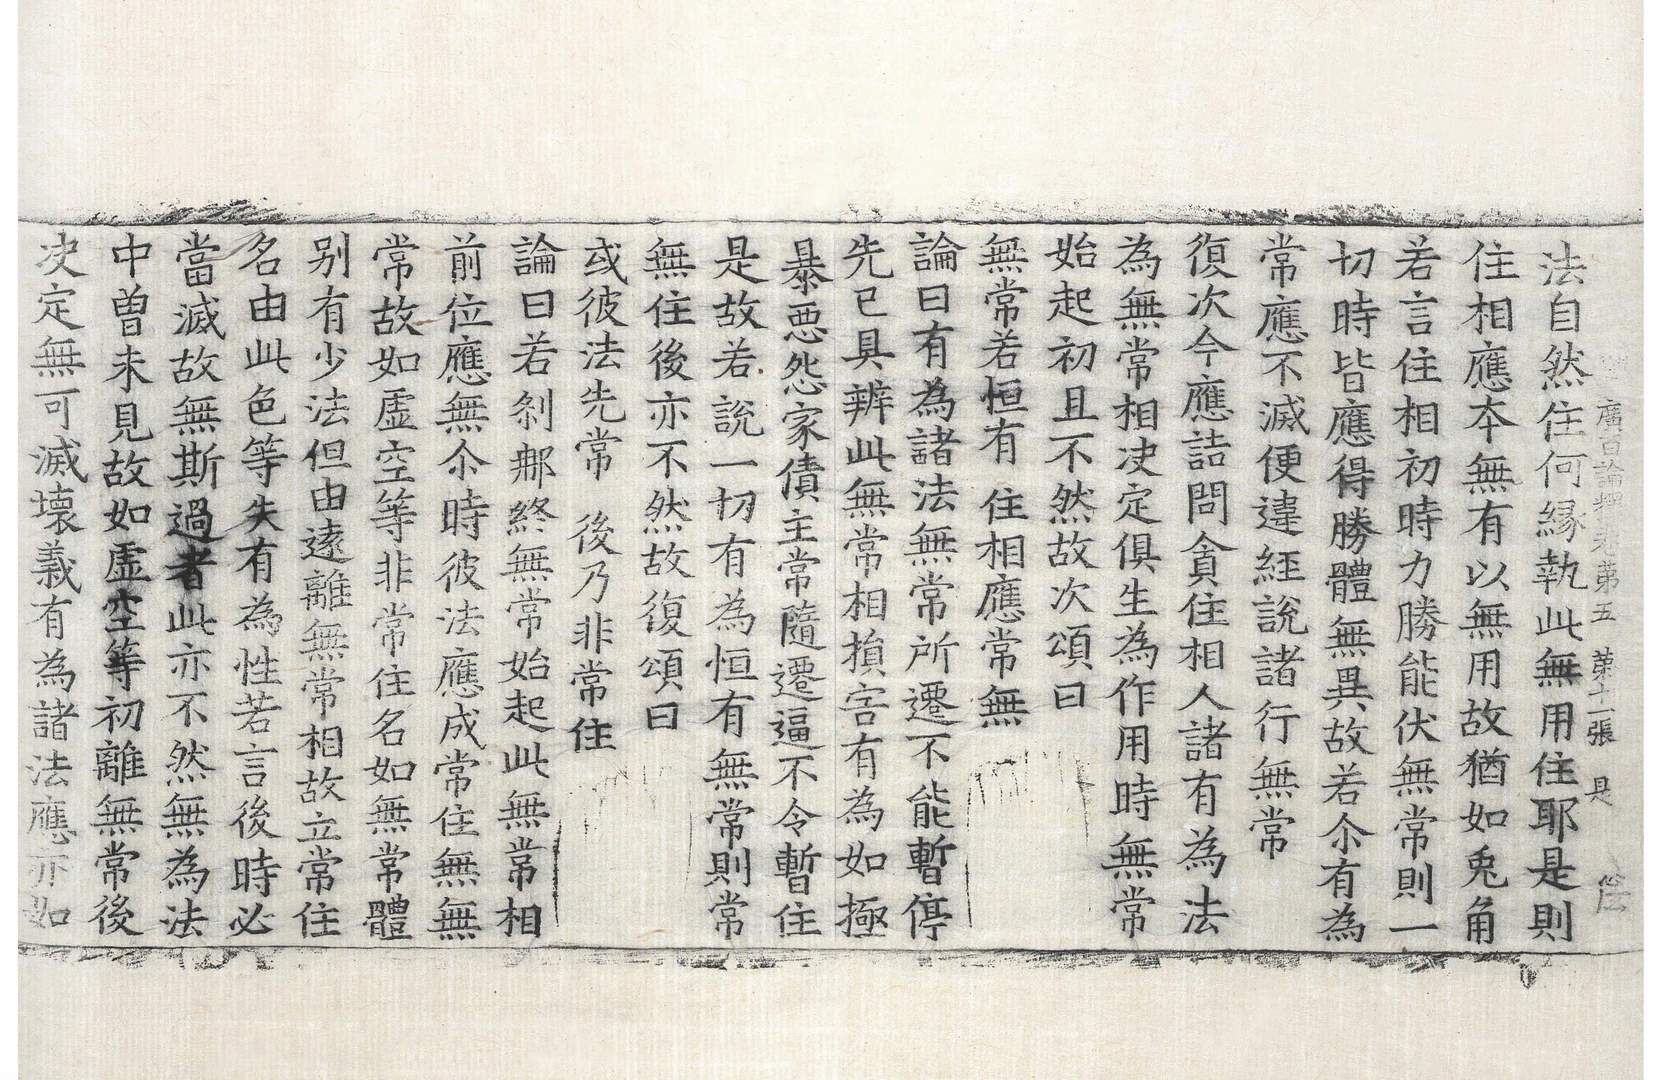 廣百論釋卷第五　第十一張　是
法自然住何緣執此無用住耶是則
住相應本無有以無用故猶如兎角
若言住相初時力勝能伏無常則一
切時皆應得勝體無異故若尒有為
常應不滅便違經說諸行無常
復次今應詰問貪住相人諸有為法
為無常相决定俱生為作用時無常
始起初且不然故次頌曰
無常若恒有　住相應常無
論曰有為諸法無常所遷不能暫停
先已具辨此無常相損害有為如極
暴惡怨家債主常隨遷逼不令暫住
是故若說一切有為恒有無常則常
無住後亦不然故復頌曰
或彼法先常　後乃非常住
論曰若剎那終無常始起此無常相
前位應無尒時彼法應成常住無無
常故如虛空等非常住名如無常體
别有少法但由遠離無常相故立常住
名由此色等失有為性若言後時必
當滅故無斯過者此亦不然無為法
中曽未見故如虛空等初離無常後
决定無可滅壞義有為諸法應亦如